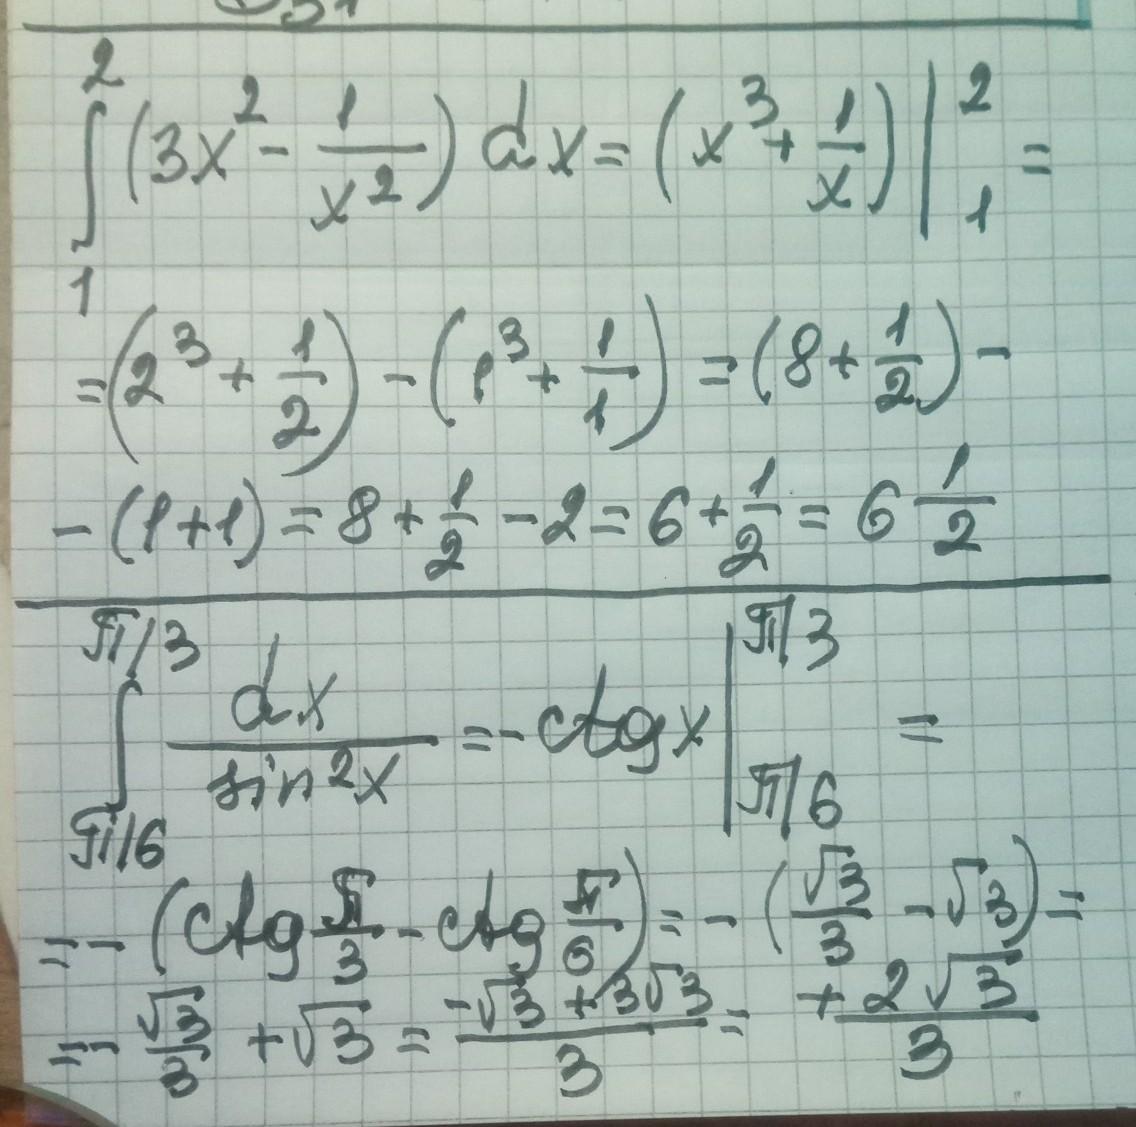 ∫₁² (3x² - 1/x²) dx = (x³ + 1/x) |₁² =
= (2³ + 1/2) - (1³ + 1/1) = (8 + 1/2) -
- (1+1) = 8 + 1/2 - 2 = 6 + 1/2 = 6 1/2
∫_{π/6}^{π/3} dx/sin²x = - ctg x |_{π/6}^{π/3} =
= - (ctg π/3 - ctg π/6) = - (√3/3 - √3) =
= - √3/3 + √3 = (-√3 + 3√3)/3 = + 2√3/3